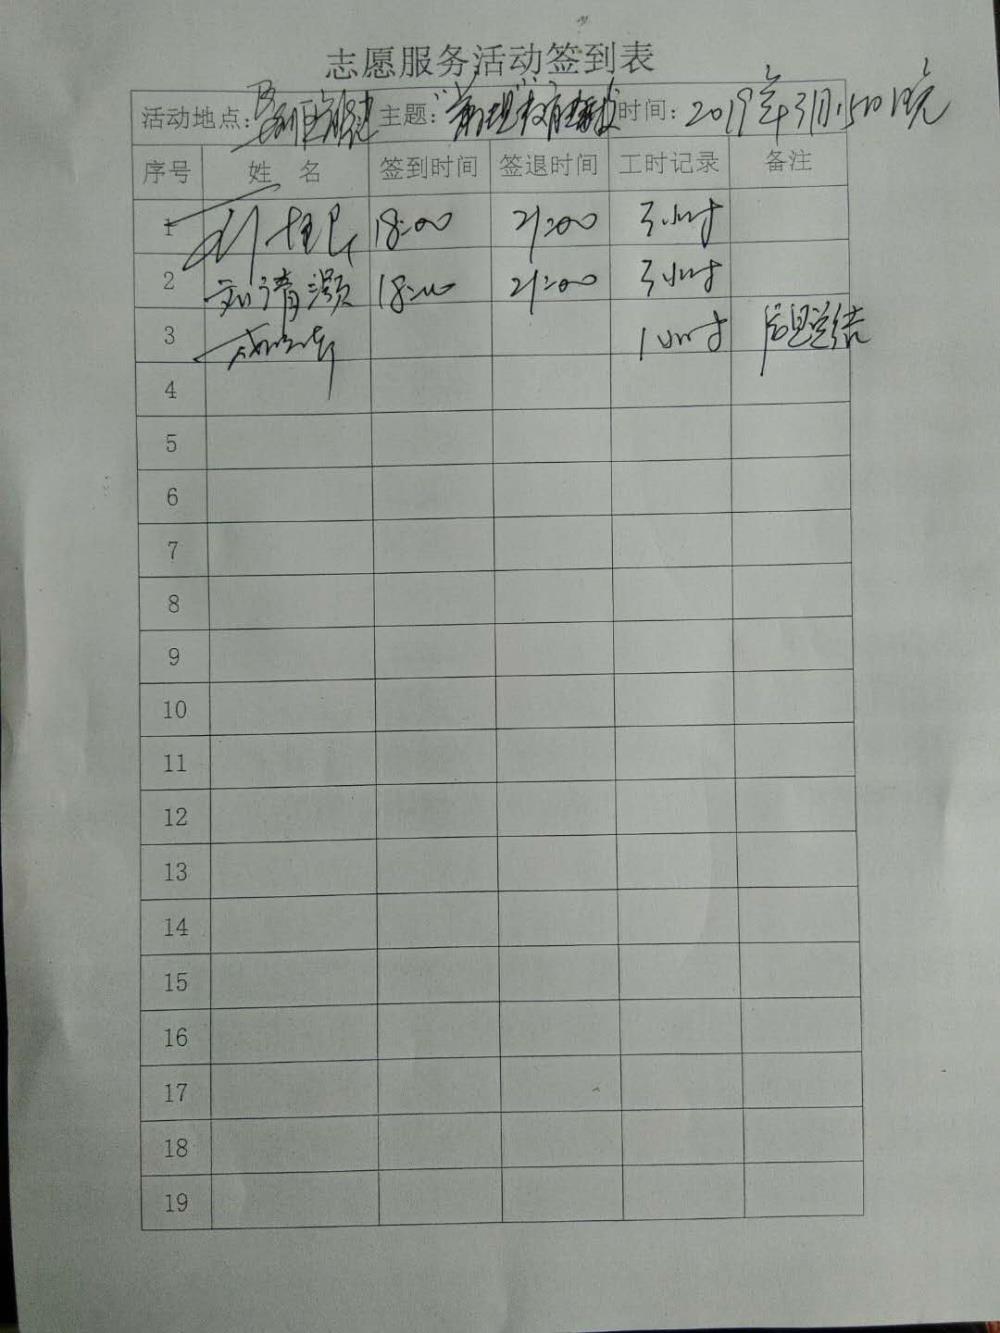 志愿服务活动签到表
活动地点: 主题: 时间: 2019年3月15日晚
序号 姓 名 签到时间 签退时间 工时记录 备注
1 18:00 21:00 3小时
2 刘清灏 18:00 21:00 3小时
3 1小时 后, 总结
4
5
6
7
8
9
10
11
12
13
14
15
16
17
18
19